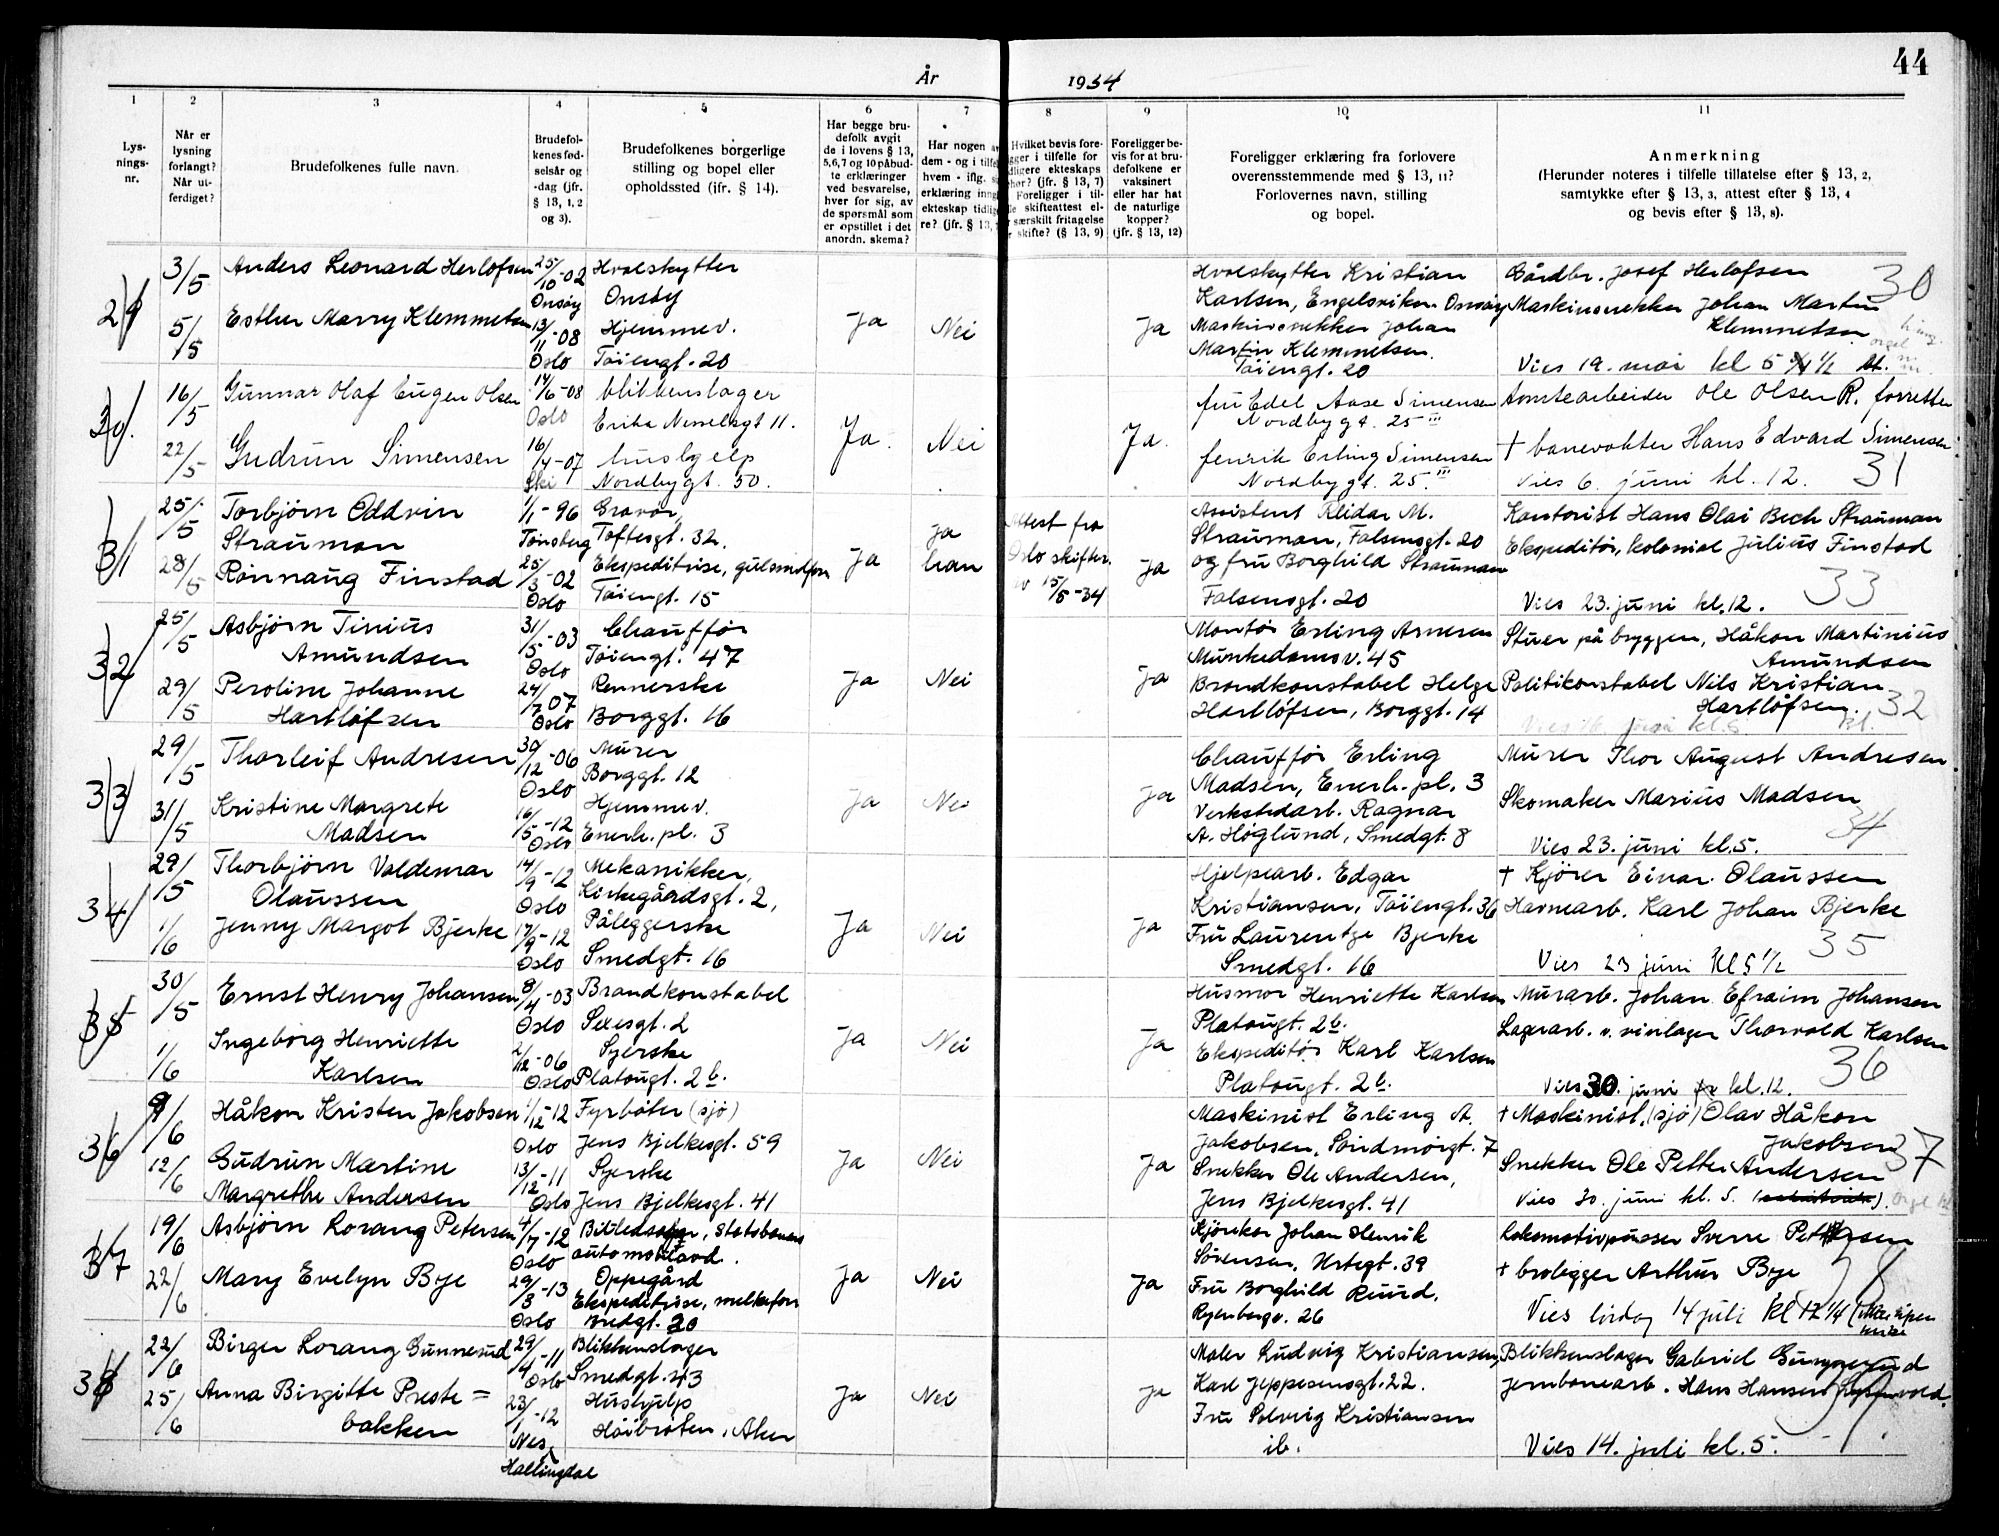 44
År 1934
1 2 3 4 5 6 7 8 9 10 11
Lysnings-nr.
Når er lysning forlangt? Når utferdiget?
Brudefolkenes fulle navn.
Brudefolkenes fødselsår og -dag (jfr. § 13, 1, 2 og 3).
Brudefolkenes borgerlige stilling og bopel eller opholdssted (ifr. § 14).
Har begge brudefolk avgit de i lovens § 13, 5,6,7 og 10 påbudte erklæringer ved besvarelse, hver for sig, av de spørsmål som er opstillet i det anordn. skema?
Har nogen av dem - og i tilfelle hvem - iflg. erklæring inngått ekteskap tidligere? (jfr. § 13,
Hvilket bevis foreligger i tilfelle for tidligere ekteskaps ophør? (jfr. § 13, 7) Foreligger i tilfelle skifteattest eller særskilt fritagelse for skifte? (§ 13, 9)
Foreligger bevis for at brudefolkene er vaksinert eller har hat de naturlige kopper? (jfr. § 13, 12)
Foreligger erklæring fra forlovere overensstemmende med § 13, 11? Forlovernes navn, stilling og bopel.
Anmerkning
(Herunder noteres i tilfelle tillatelse efter § 13, 2, samtykke efter § 13, 3, attest efter § 13, 4 og bevis efter § 13, 8).
29
3/5 Anders Leonard Herlofsen 25/10-02 Onsøy Hvalskytter Onsøy
5/5 Esther Marry Klemmetsen 13/11-08 Oslo Hjemmev. Töiengt. 20
Ja Nei Ja
Hvalskytter Kristian
Karlsen, Engelsviken Onsöy
Maskinsnekker Johan
Martin Klemmetsen.
Töiengt. 20
Gårdbr. Josef Herlofsen 30
Maskinsnekker Johan Martin
Klemmetsen
Vies 19. mai kl 5 1/2
30
16/5 Gunnar Olaf Eugen Olsen 14/6-08 Oslo blikkenslager Erika Nisselsgt 11.
22/5 Gudrun Simensen 16/4-07 Ski husbjelp Nordbygt. 50.
Ja Nei Ja.
fru Edel Aase Simensen
Nordbygt. 25 III
fenrik Erling Simensen
Nordbygt. 25 III
tomtearbeider Ole Olsen R. forretter
+ banevokter Hans Edvard Simensen
Vies 6. juni kl. 12. 31
31
25/5 Torbjörn Oddvin Strauman 1/1-96 Tönsberg Gravör, Toftesgt. 32.
28/5 Rönnaug Finstad 25/3-02 Oslo Ekspeditrise, gulsmedforr Töiengt. 15
Ja Ja han
Attest fra Oslo skifter. av 15/5-34
Ja
Assistent Reidar M.
Strauman, Falsensgt. 20
og fru Borghild Strauman
Falsensgt. 20
Kontorist Hans Olai Bech Strauman
Ekspeditör, kolonial Julius Finstad
Vies 23. juni kl. 12. 33
32
25/5 Asbjörn Tinius Amundsen 31/5-03 Oslo Chafför Töiengt. 47
29/5 Peroline Johanne Hartlöfsen 24/7 07 Oslo Rennerske Borggt. 16
Ja Nei Ja
Montör Erling Arnesen
Munkedamsv. 45
Brandkonstabel Helge
Hartlöfsen, Borggt. 14
Stuer på bryggen, Håkon Martinius
Amundsen
Politikonstabel Nils Kristian
Hartlöfsen. 32
33
29/5 Thorleif Andresen 30/12-06 Oslo Murer Borggt. 12
31/5 Kristine Margrete Madsen 16/5-12 Oslo Hjemmev. Enerh. pl. 3
Ja Nei Ja
Chafför Erling
Madsen, Enerh. pl. 3
Verkstedarb. Ragnar
A. Höglund, Smedgt. 8
Murer Thor August Andresen
Skomaker Marius Madsen
34
Vies 23. juni kl. 5.
34
29/5 Thorbjörn Valdemar Olaussen 14/9-12 Oslo Mekanikker, Kirkegårdsgt. 2,
1/6 Jenny Margot Bjerke 17/9-12 Oslo Påleggerske Smedgt. 16
Ja Nei Ja
Hjelpearb. Edgar
Kristiansen, Töiengt. 36
Fru Laurentze Bjerke
Smedgt. 16
+ Kjörer Einar Olaussen
Havnearb. Karl Johan Bjerke
35
Vies 23 juni kl 5 1/2
35
30/5 Ernst Henry Johansen 8/4-03 Oslo Brandkonstabel Sexesgt. 2
1/6 Ingeborg Henriette Karlsen 2/12-06 Oslo Syerske Platougt. 2 b.
Ja Nei Ja
Husmor Henriette Karlsen
Platougt. 2 b.
Ekspeditör Karl Karlsen
Platougt. 2 b.
Murarb. Johan Efraim Johansen
Lagerarb. v. vinlager Thorvald Karlsen
36
Vies 30. juni kl. 12.
36
9/6 Håkon Kristen Jakobsen 1/12-12 Oslo Fyrböter (sjö) Jens Bjelkesgt. 59
12/6 Gudrun Martine Margrethe Andersen 13/12-11 Oslo Syerske Jens Bjelkesgt. 41
Ja Nei Ja
Maskinist Erling A.
Jakobsen, Söndmörgt. 7
Snekker Ole Andersen,
Jens Bjelkesgt. 41
+ Maskinist, (sjö) Olav Håkon
Jakobsen 37
Snekker Ole Petter Andersen
Vies 30. juni kl. 5.
37
19/6 Asbjörn Lorang Petersen 4/7-12 Oslo Billedsager, Statsbanens automobilavd. Oppegård
22/6 Mary Evelyn Bye 29/3-13 Oslo Ekspeditrise, melkeforr Bredgt. 20
Ja Nei Ja
Kjörekar Johan Henrik
Sörensen, Urtegt. 39
Fru Borghild Ruud.
Ryenbergv. 26
Lokomotivpusser Sverre Petersen
+ brolegger Arthur Bye
38
Vies lördag 14 juli kl 12 1/4
38
22/6 Birger Lorang Gunnerud 29/4-11 Oslo Blikkenslager Smedgt. 43
25/6 Anna Birgitte Prestebakken 23/1-12 Nes, Hallingdal Hushjelp Höibråten, Aker
Ja Nei Ja
Maler Ludvig Kristiansen,
Karl Jeppesensgt. 22.
Fru Solveig Kristiansen
ib.
Blikkenslager Gabriel Gunnerud
Jernbanearb. Hans Hansen
39
Vies 14. juli kl. 5.